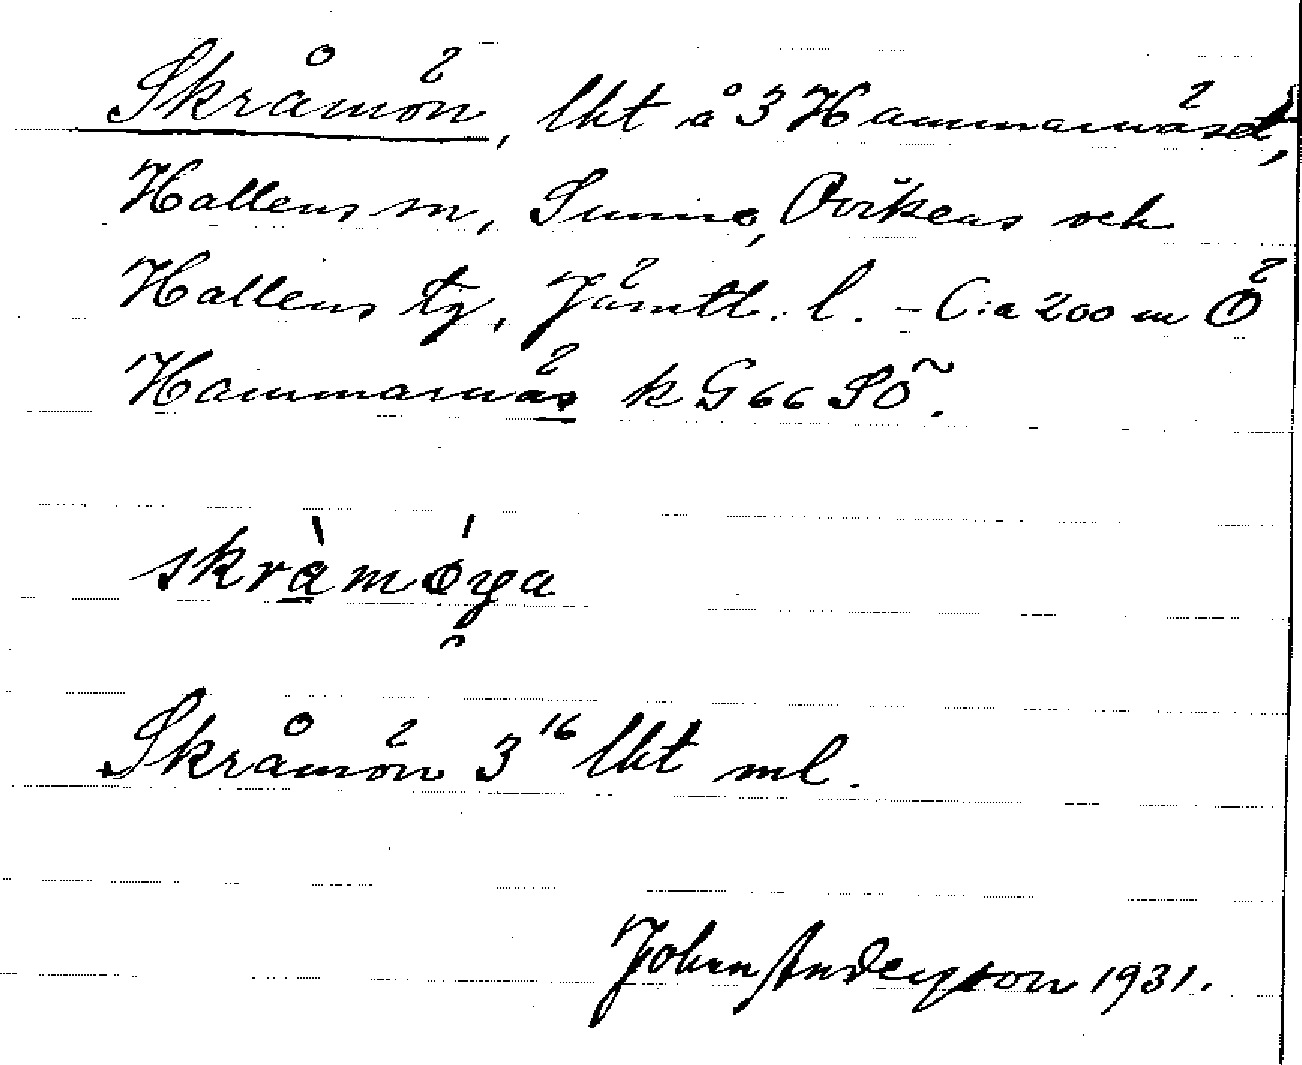 Skråmon, lht å 3 Hammarnäset,
Hallens sn, Sunne, Ovikens och
Hallens tg, Jämtl. l. – C:a 200 m Ö
Hammarnäs k G66 SÖ.
skràmóya
Skråmön 3¹⁶ lht ml.
Johan Anderson 1931.